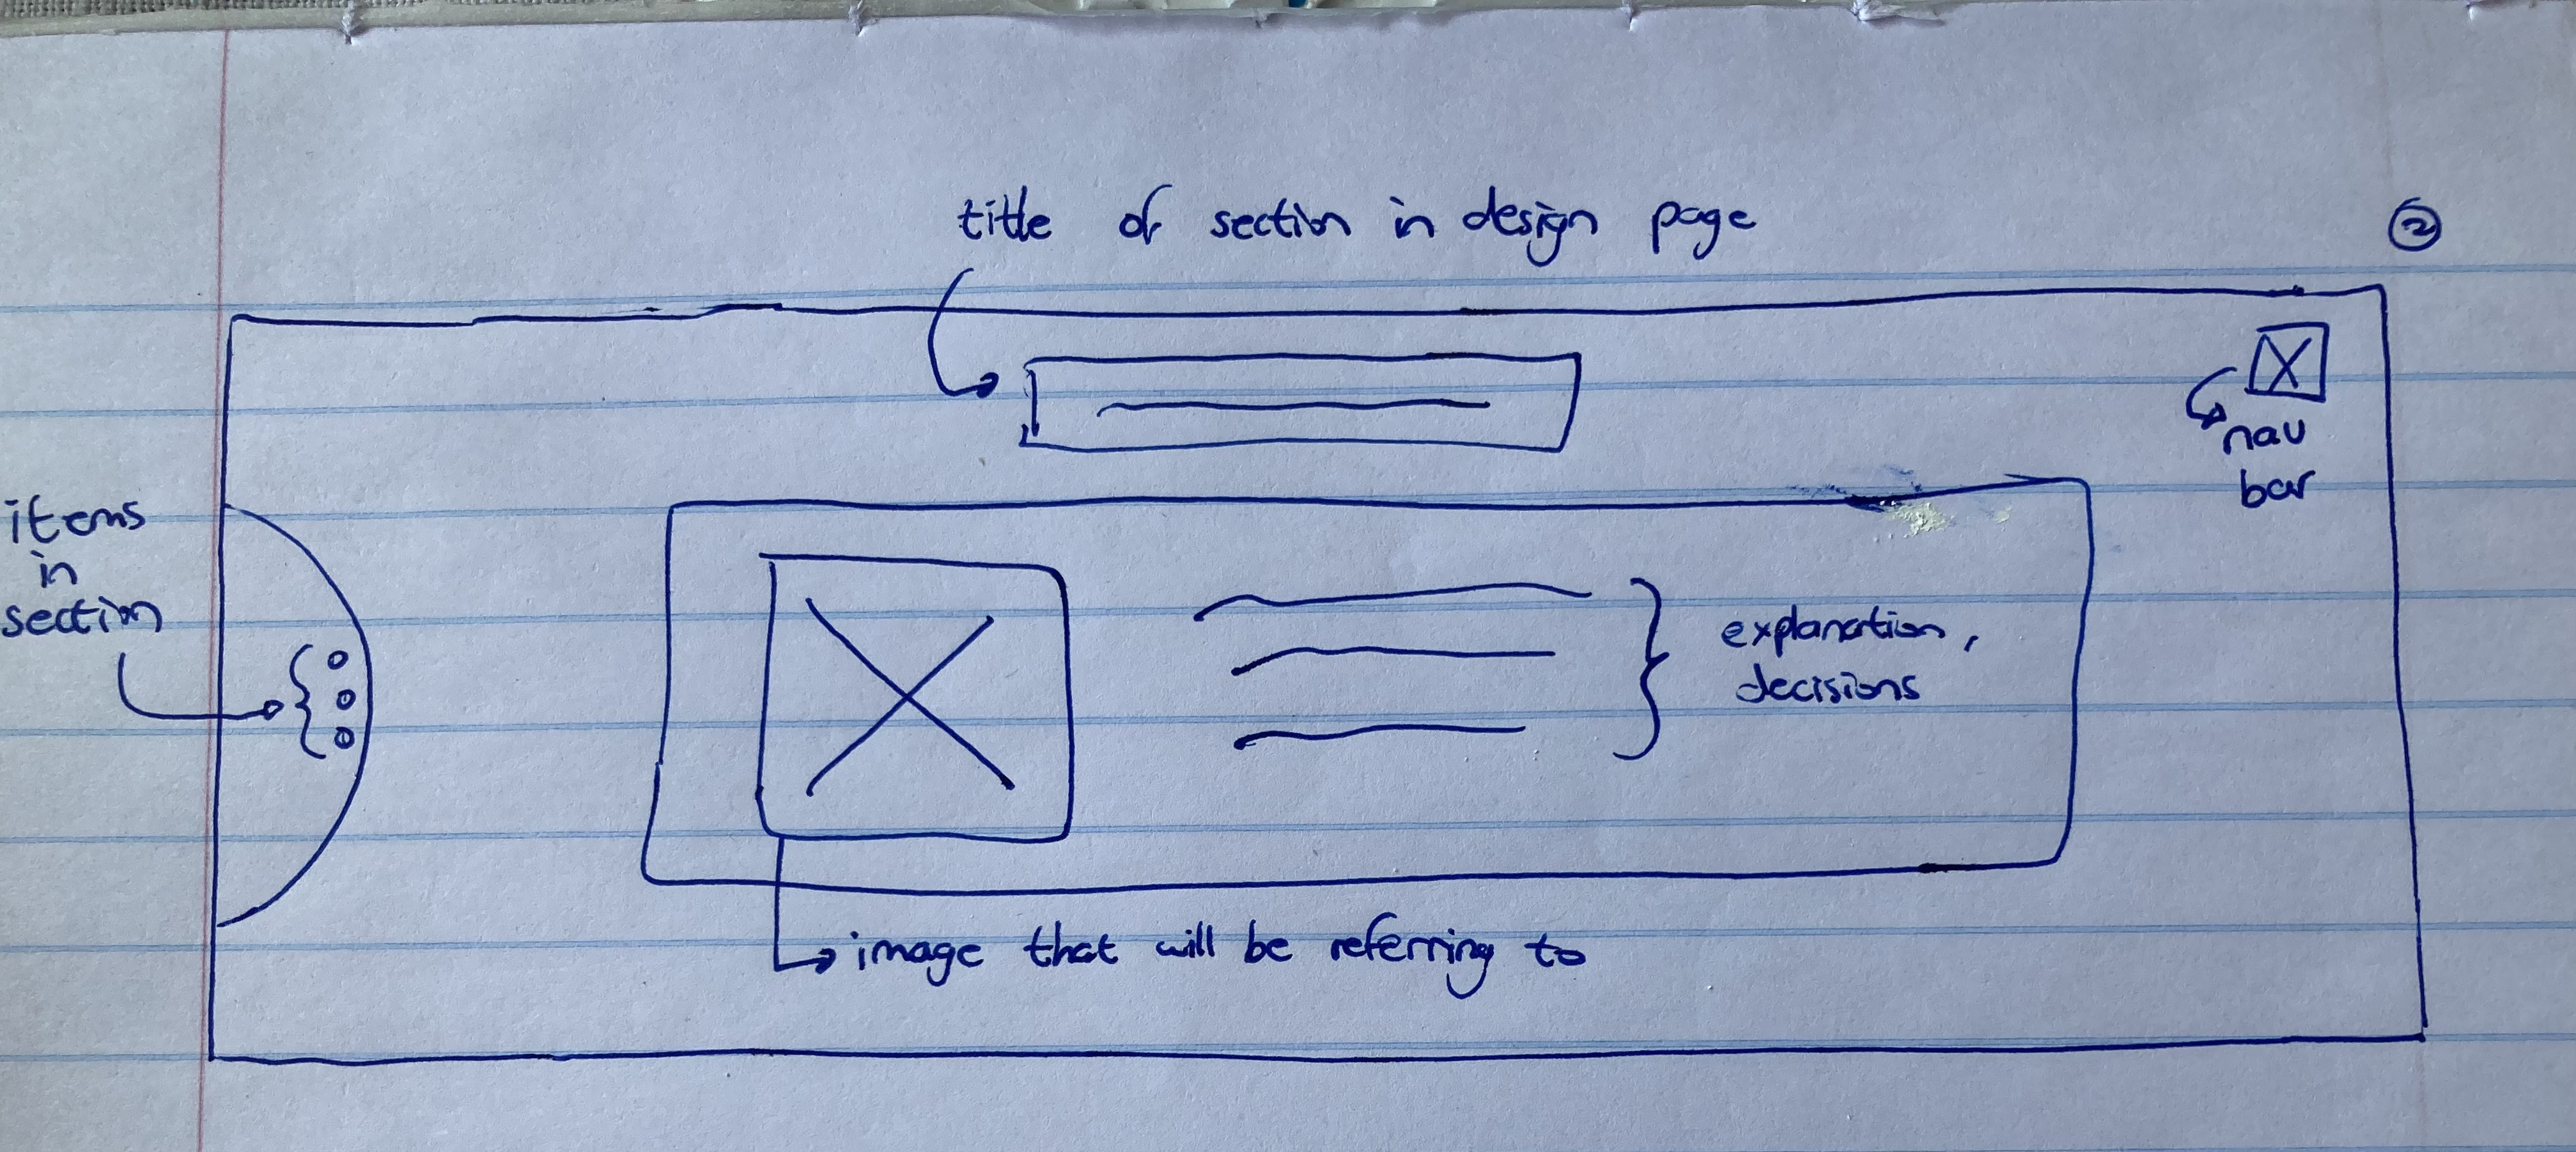 title of section in design page
2
nav
bar
items
in
section
explanation,
decisions
image that will be referring to